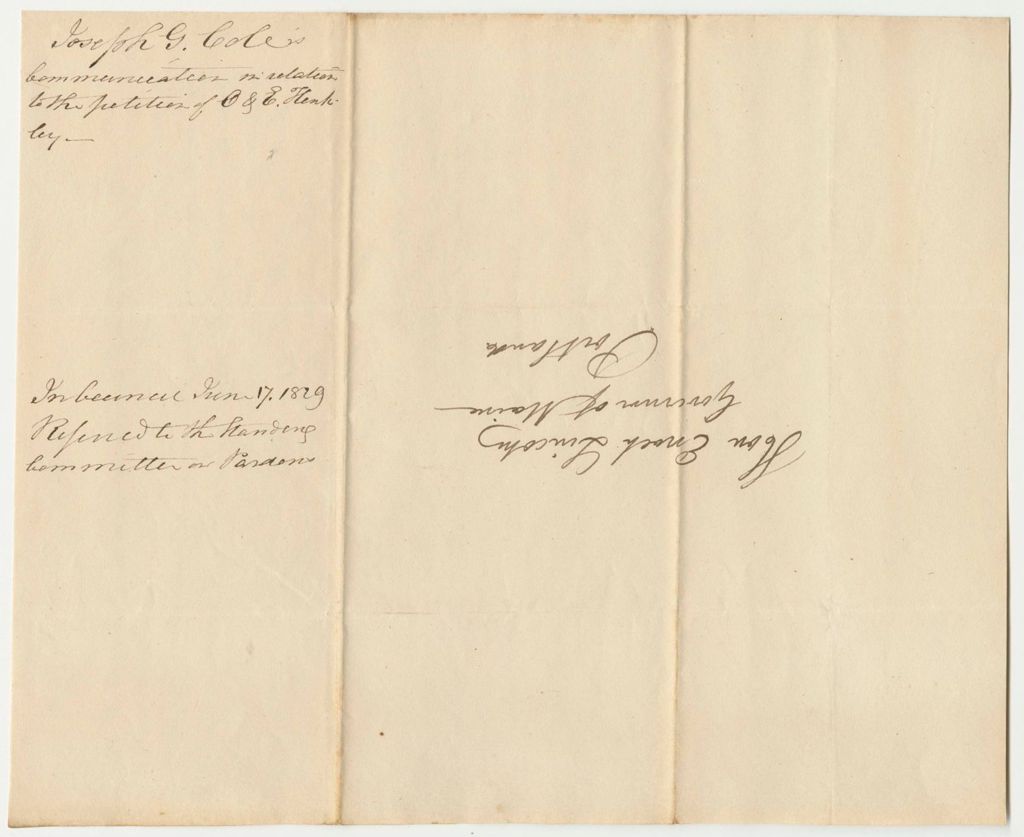 Joseph G. Cole's
communication in relation
to the petition of O & E. Hink-
ley—
In Council June 17. 1829
Referred to the Standing
Committee on Pardons
Hon Enoch Lincoln
Governor of Maine
Portland